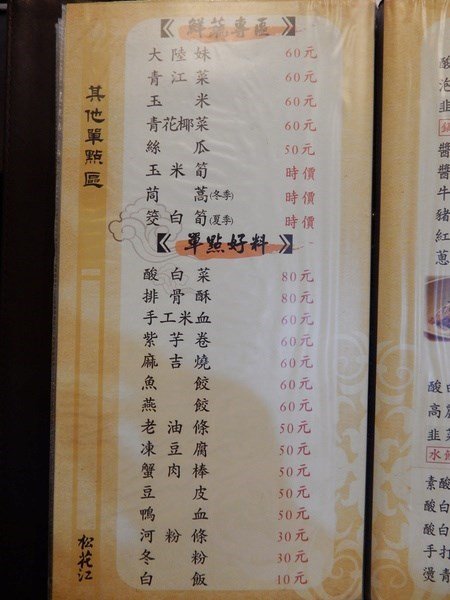 其他單點區
鮮菜專區
大陸妹 60元
青江菜 60元
玉米 60元
青花椰菜 60元
絲瓜 50元
玉米筍 時價
茼蒿(冬季) 時價
筊白筍(夏季) 時價
單點好料
酸白菜 80元
排骨酥 80元
手工米血 60元
紫芋卷 60元
麻吉燒 60元
魚餃 60元
燕餃 60元
老油條 50元
凍豆腐 50元
蟹肉棒 50元
豆皮 50元
鴨血 50元
河粉條 30元
冬粉 30元
白飯 10元
松花江
酸
泡
韭
醬
醬
牛
豬
紅
蔥
酸白
高麗
韭菜
素酸
酸白
酸白
手打
燙青